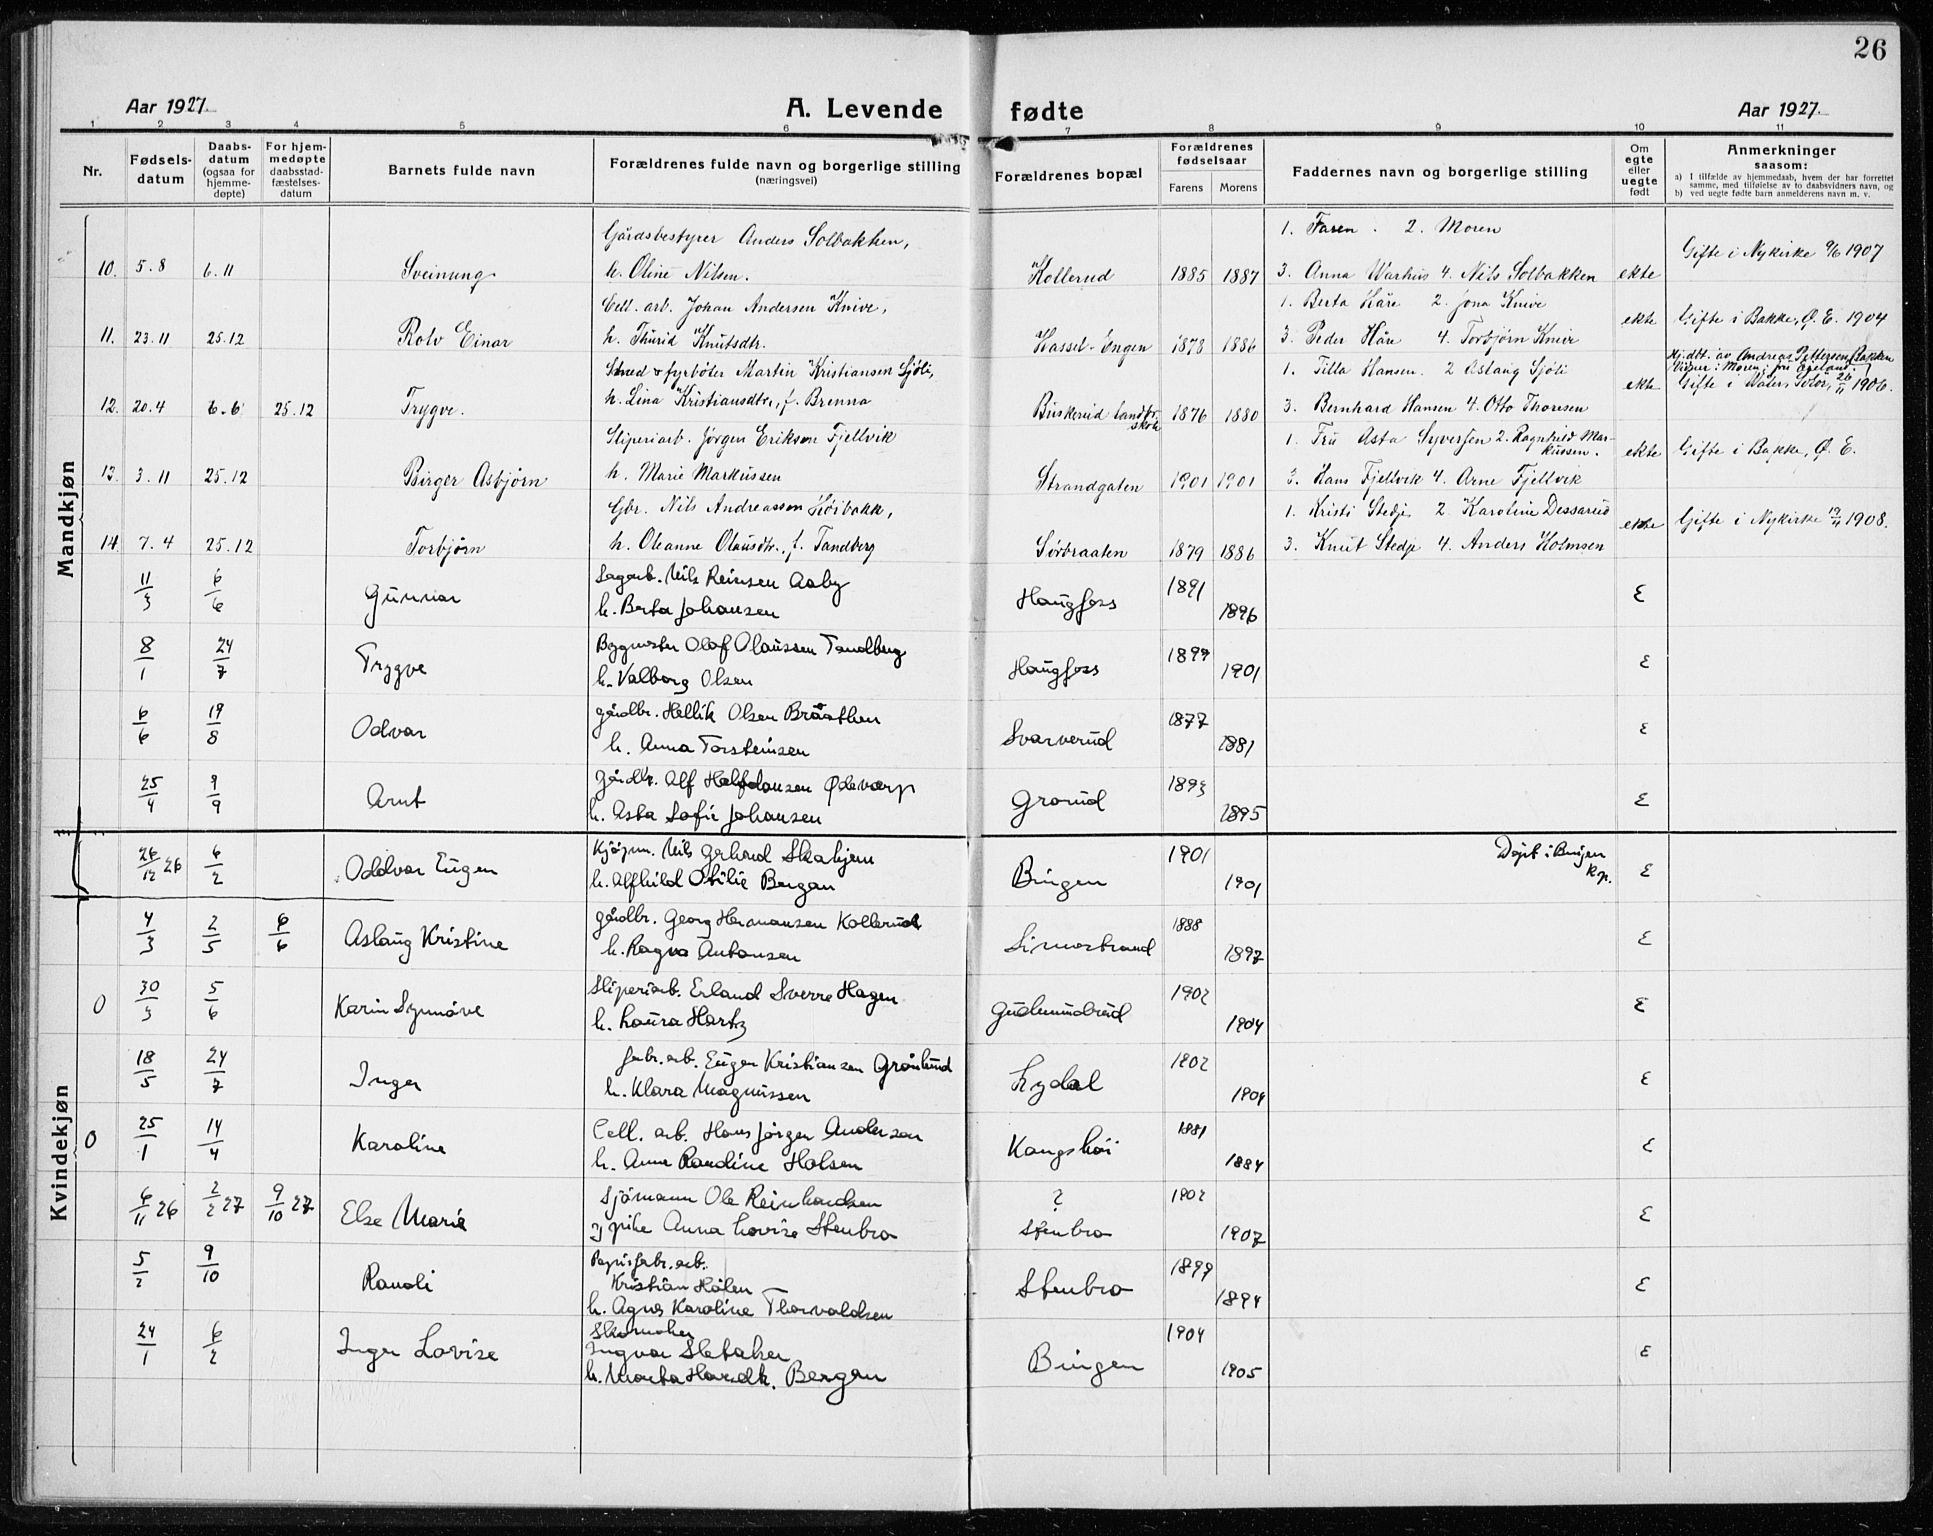 26
Aar 1927.
A. Levende fødte
Aar 1927.
1 2 3 4 5 6 7 8 9 10 11
Nr.
Fødsels-
datum
Daabs-
datum
(ogsaa for
hjemme-
døpte)
For hjem-
medøpte
daabsstad-
fæstelses-
datum
Barnets fulde navn
Forældrenes fulde navn og borgerlige stilling
(næringsvei)
Forældrenes bopæl
Forældrenes
fødselsaar
Farens Morens
Faddernes navn og borgerlige stilling
Om
egte
eller
uegte
født
Anmerkninger
saasom:
a) I tilfælde av hjemmedaab, hvem der har forrettet
samme, med tilføielse av to daabsvidners navn, og
b) ved uegte fødte barn anmelderens navn m. v.
Mandkjøn
Gårdsbestyrer Anders Solbakken, 1. Faren. 2. Moren
10. 5.8 6.11 Sveinung h. Oline Nilsen. Kollerud 1885 1887 3. Anna Warhus 4. Nils Solbakken ekte Gifte i Nykirke 9/6 1907
Cell. arb. Johan Andersen Knive, 1. Berta Håre 2. Jona Knive
11. 23.11 25.12 Rolv Einar h. Thurid Knutsdtr. Hassel-Engen 1878 1886 3. Peder Håre 4. Torbjørn Knive ekte Gifte i Bakke, Ø. E. 1904
Smed & fyrbøter Martin Kristiansen Sjöli, 1. Tilla Hansen. 2 Aslaug Sjöli Hj.dbt. av Andreas Pettersen Bakken
12. 20.4 6.6 25.12 Trygve. h. Lina Kristiansdtr., f. Brenna Buskerud landbr. skole 1876 1880 3. Bernhard Hansen 4. Otto Thoresen ekte Gifte i 26/11 1906.
Sliperiarb. Jörgen Erikson Fjellvik 1. Fru Asta Syversen 2. Ragnhild Mar-
kussen.
13. 3.11 25.12 Birger Asbjörn h. Marie Markussen Strandgaten 1901 1901 3. Hans Fjellvik 4. Arne Fjellvik ekte Gifte i Bakke, Ø. E.
Gbr. Nils Andreassen Höibakk, 1. Kristi Stedje 2 Karoline Dessarud
14. 7.4 25.12 Torbjörn h. Oleanne Olausdtr., f. Tandberg Sörbraaten 1879 1886 3. Knut Stedje 4. Anders Holmsen ekte Gifte i Nykirke 1908.
11/3 6/6 Gunnar Sagarb. Nils Reinsen Aaby
h. Berta Johansen Haugfoss 1891 1896 E
8/1 24/7 Trygve Bygmester Olaf Olaussen Tandberg
h. Valborg Olsen Haugfoss 1899 1901 E
6/6 19/8 Odvar Gårdbr. Hellik Olsen Bråthen
h. Anna Torsteinsen Svarverud 1877 1881 E
25/4 9/9 Arnt Gårdbr. Alf Halfdansen Ødeværp
h. Asta Sofie Johansen Grorud 1893 1895 E
26/12 26 6/2 Oddvar Eugen Kjøpm. Nils Gerhard Skahjem
h. Alfhild Otilie Bergan Bingen 1901 1901 Døpt i Bingen
Kp. E
Kvindekjøn
4/3 2/5 6/6 Aslaug Kristine Gårdbr. Georg Hermansen Kollerud
h. Ragna Antonsen Simostrand 1888 1897 E
0 30/3 5/6 Karin Synnöve Sliperiarb. Erland Sverre Hagen
h. Laura Hartz Gudmundsrud 1902 1904 E
18/5 24/7 Inger Fabr. arb. Eugen Kristiansen Grönlund
h. Klara Magnussen Lydal 1902 1904 E
0 25/1 14/4 Karoline Cell. arb. Hans Jörgen Andersen
h. Anne Randine Holsen Kongshöi 1881 1884 E
6/11 26 2/2 27 9/10 27 Else Marie Sjömann Ole Reinhardsen
og pike Anna Lovise Stenbro ? Stenbro 1902 1907 E
5/2 9/10 Randi Papirfabr. arb.
Kristian Holen
h. Agnes Karoline Thorvaldsen Stenbro 1899 1894 E
24/1 6/2 Inger Lovise Skomaker
Ingvar Sletaker
h. Marta Hardk. Bergan Bingen 1904 1905 E